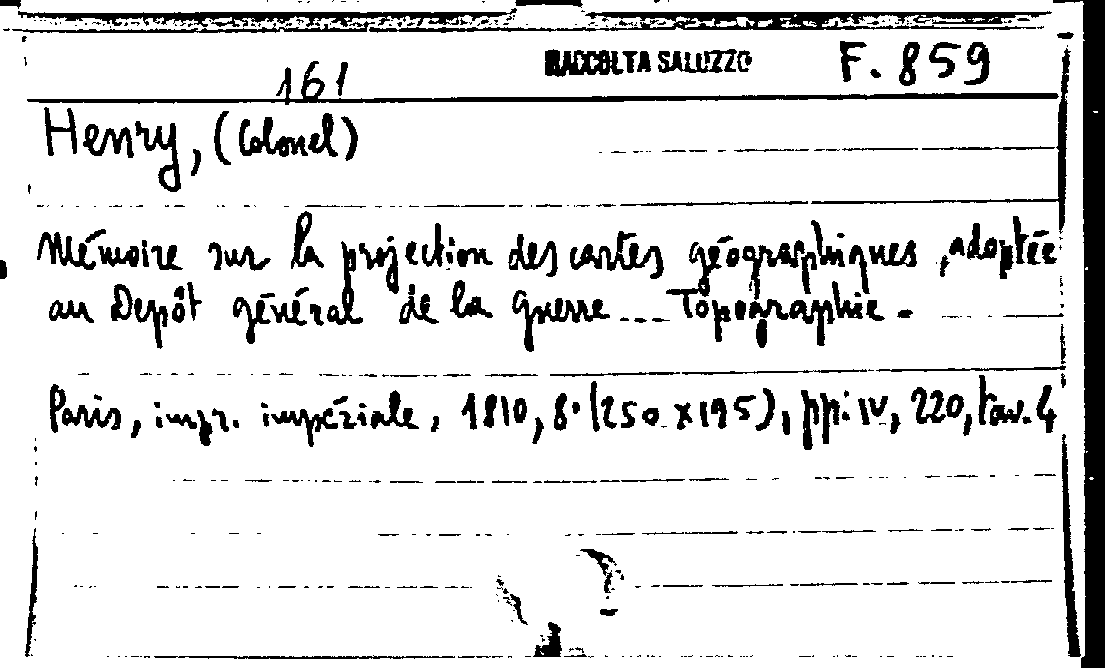 RACCOLTA SALUZZO F. 859
161
Henry, (Colonel)
Mémoire sur la projection des cartes géographiques, adoptée
au Depôt général de la guerre... Topographie.
Paris, impr. impériale, 1810, 8° (250 x 195), pp. IV, 220, tav. 4